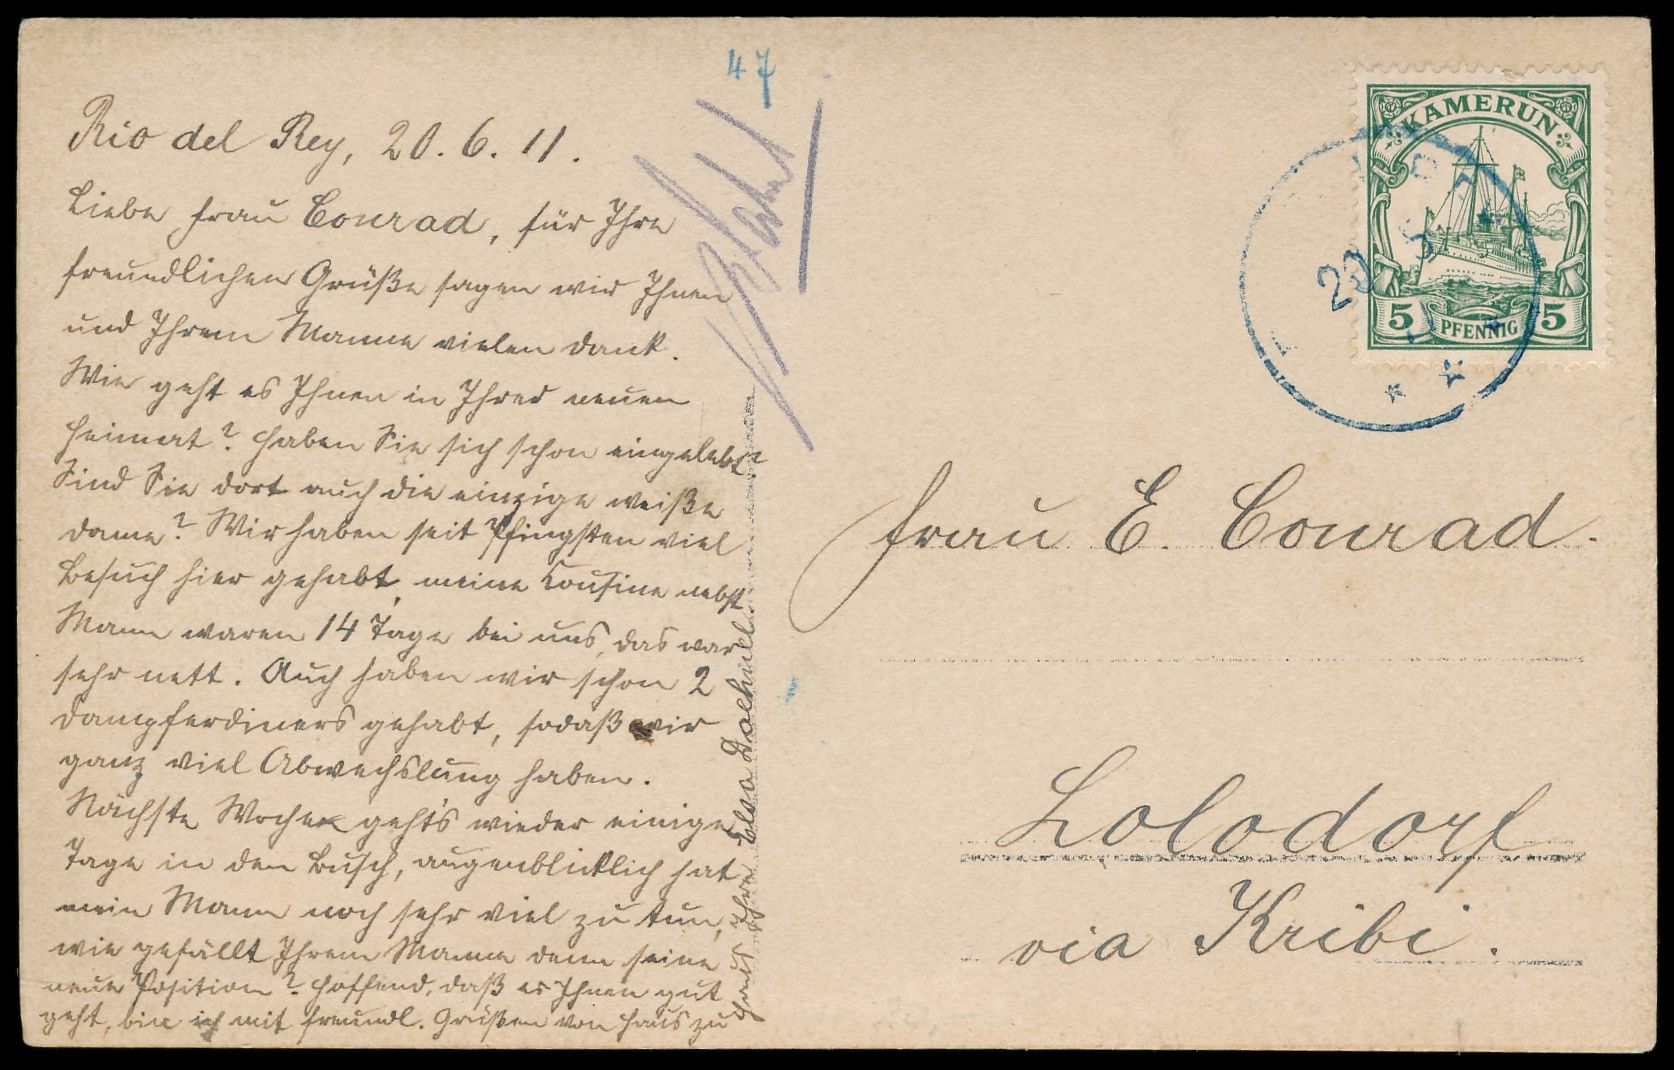 47
Rio del Rey, 20. 6. 11.
Liebe Frau Conrad, für Ihre
freundlichen Grüße sagen wir Ihnen
und Ihrem Manne vielen Dank.
Wie geht es Ihnen in Ihrer neuen
Heimat? Haben Sie sich schon eingelebt?
Sind Sie dort auch die einzige weiße
Dame? Wir haben seit Pfingsten viel
Besuch hier gehabt, meine Cousine nebst
Mann waren 14 Tage bei uns, das war
sehr nett. Auch haben wir schon 2
Dampferdiners gehabt, sodaß wir
ganz viel Abwechslung haben.
Nächste Woche geht's wieder einige
Tage in den Busch, augenblicklich hat
mein Mann noch sehr viel zu tun,
wie gefällt Ihrem Manne denn seine
neue Position? Hoffend, daß es Ihnen gut
geht, bin ich mit freundl. Grüßen von Haus zu
Haus Ihre Elsa
KAMERUN
5 PFENNIG 5
Frau E. Conrad.
Lolodorf
via Kribi.